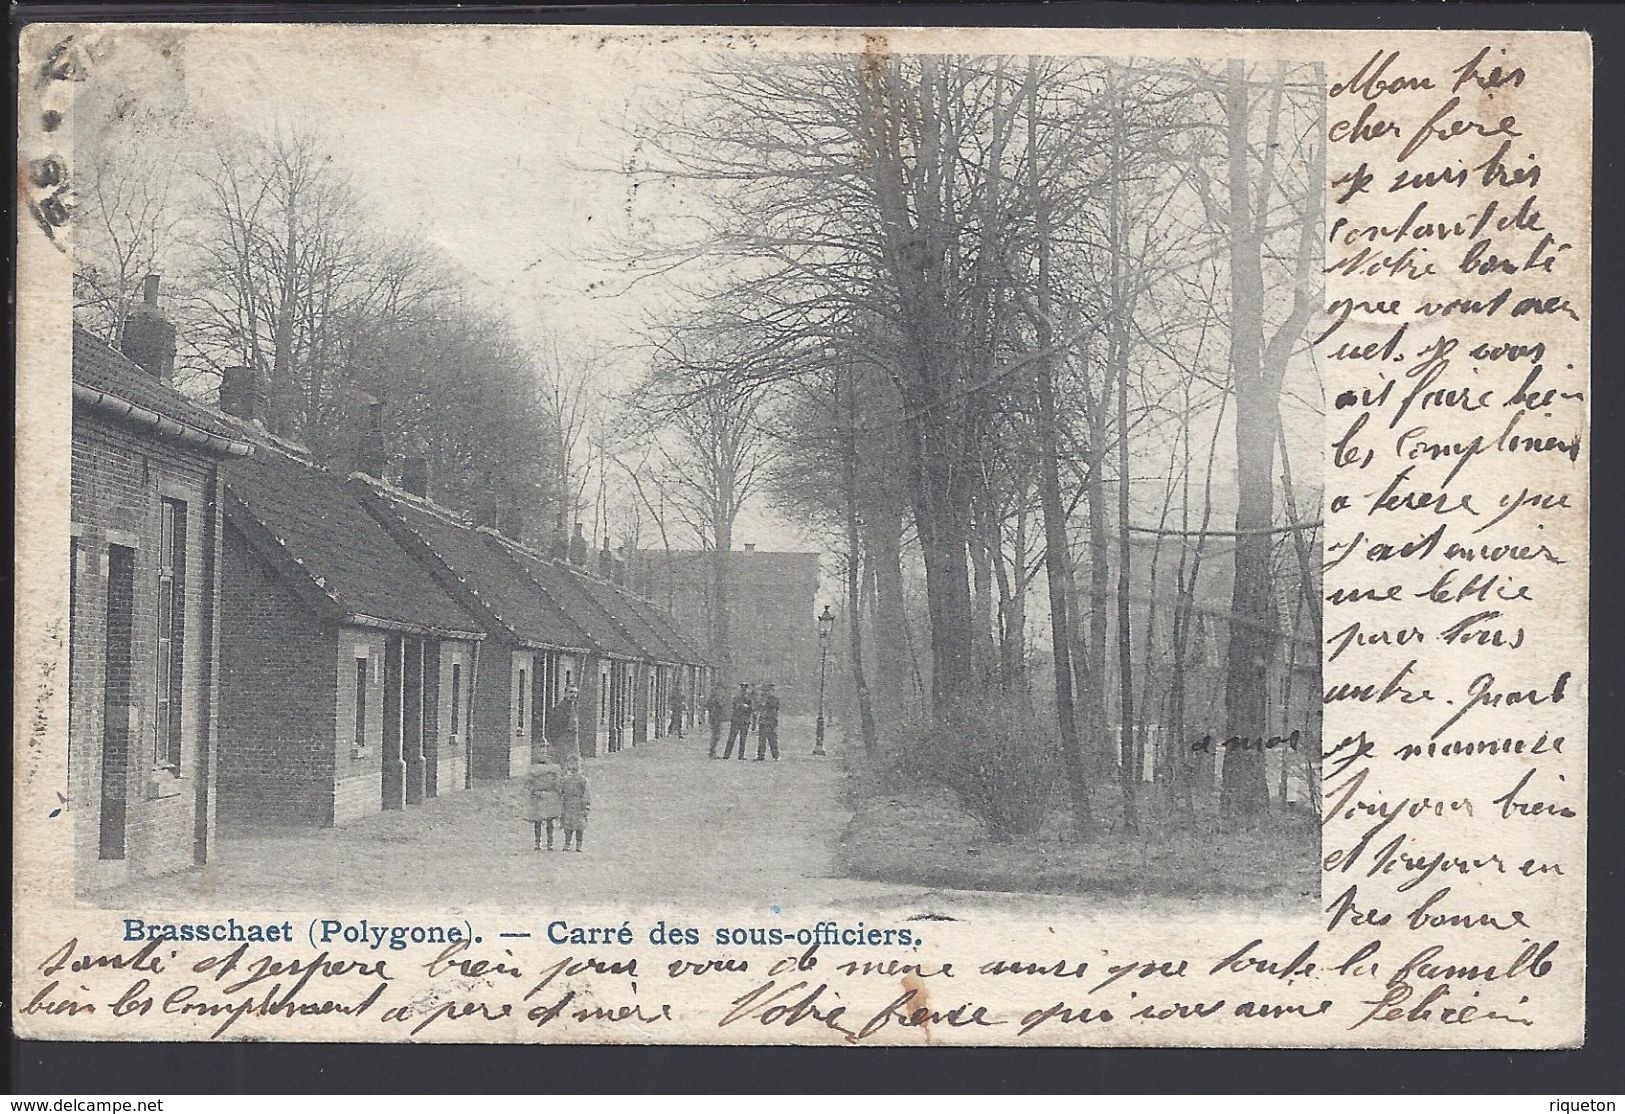 Mon très
cher frere
je suis très
contant de
Votre bonté
que vous aven
uet. je vous
ait faire bien
les Complimen
a terese que
j'ait envoier
une lettre
pour tous
antre. Quant
a moi je mamuse
toujour bien
et toujour en
tres bonne
Brasschaet (Polygone). — Carré des sous-officiers.
santé et jespere bien pour vous de mème ainsi que toute la famille
bien les Complimeant a pere et mère Votre frere qui vous aime Felicien
delcampe.net
riqueton